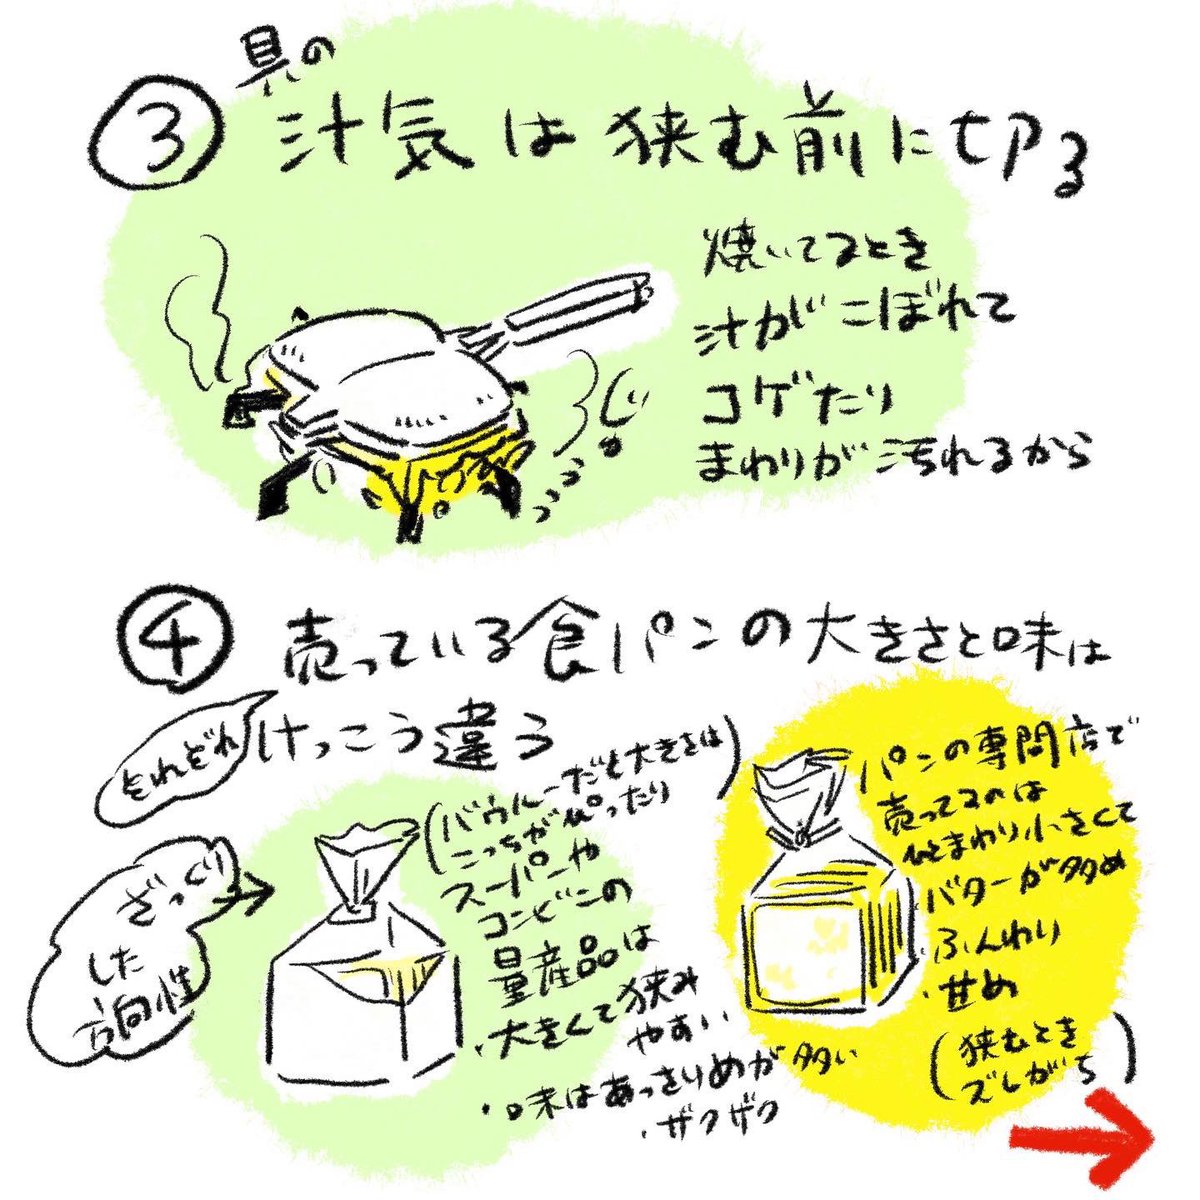 ③
具の
汁気は狭む前に切る
焼いてるとき
汁がこぼれて
コゲたり
まわりが汚れるから
じゅ
④
売っている食パンの大きさと味は
それぞれ
けっこう違う
ざっくり
した
方向性
(バウルーだと大きさは
こっちがぴったり)
スーパーや
コンビニの
量産品は
・大きくて狭み
やすい
・味はあっさりめが多い
・ザクザク
パンの専門店で
売ってるのは
ひとまわり小さくて
・バターが多め
・ふんわり
・甘め
(狭むとき
ズレがち)